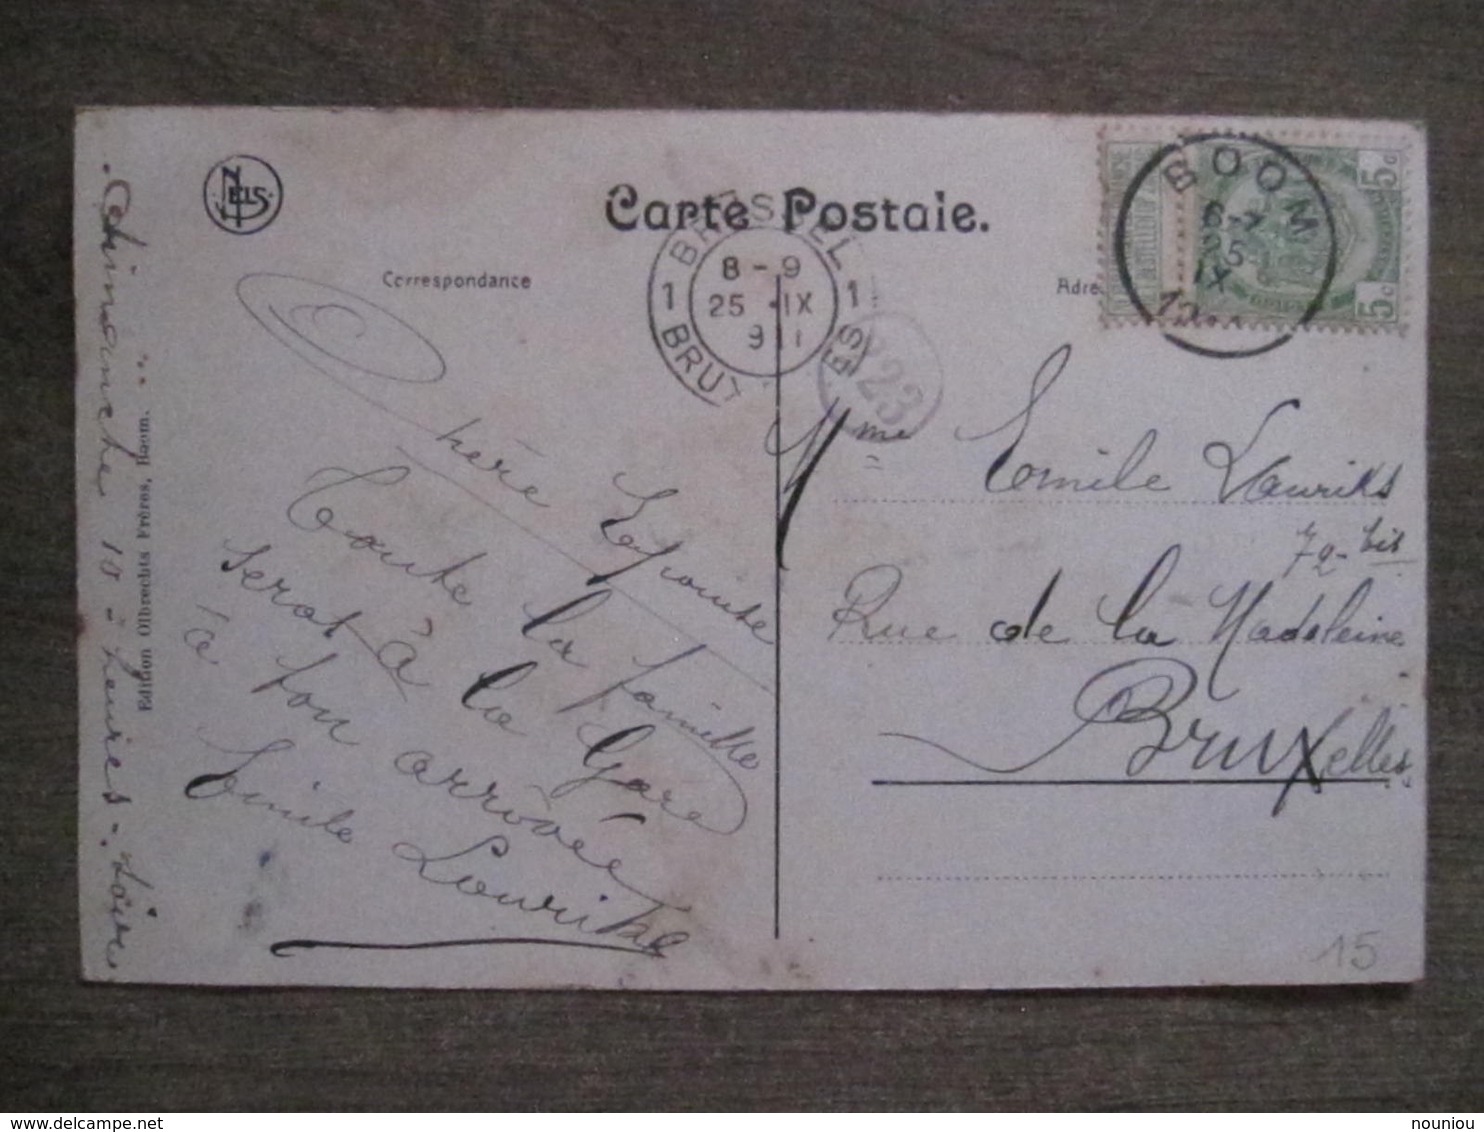 NELS
Carte Postale.
Correspondance
Adre
BRUXELLES
8-9
25 IX
1 1
BRUX
ES
223
BOOM
6-7
25
IX
5c 5c
Mme Emile Lauriks
72 bis
Rue de la Madeleine
Bruxelles
Chère Epouse
Toute la famille
serat à la Gare
a ton arrivée
Emile Louriks
Dimanche 10 - heures - Soir
Edition Olbrechts Frères, Boom.
15
nouniou